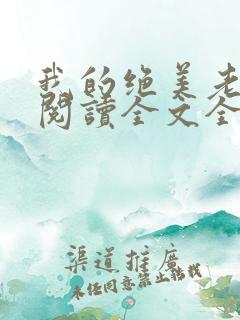 我的绝美老
阅讀全文全
渠道推廣
未经同意禁止转载